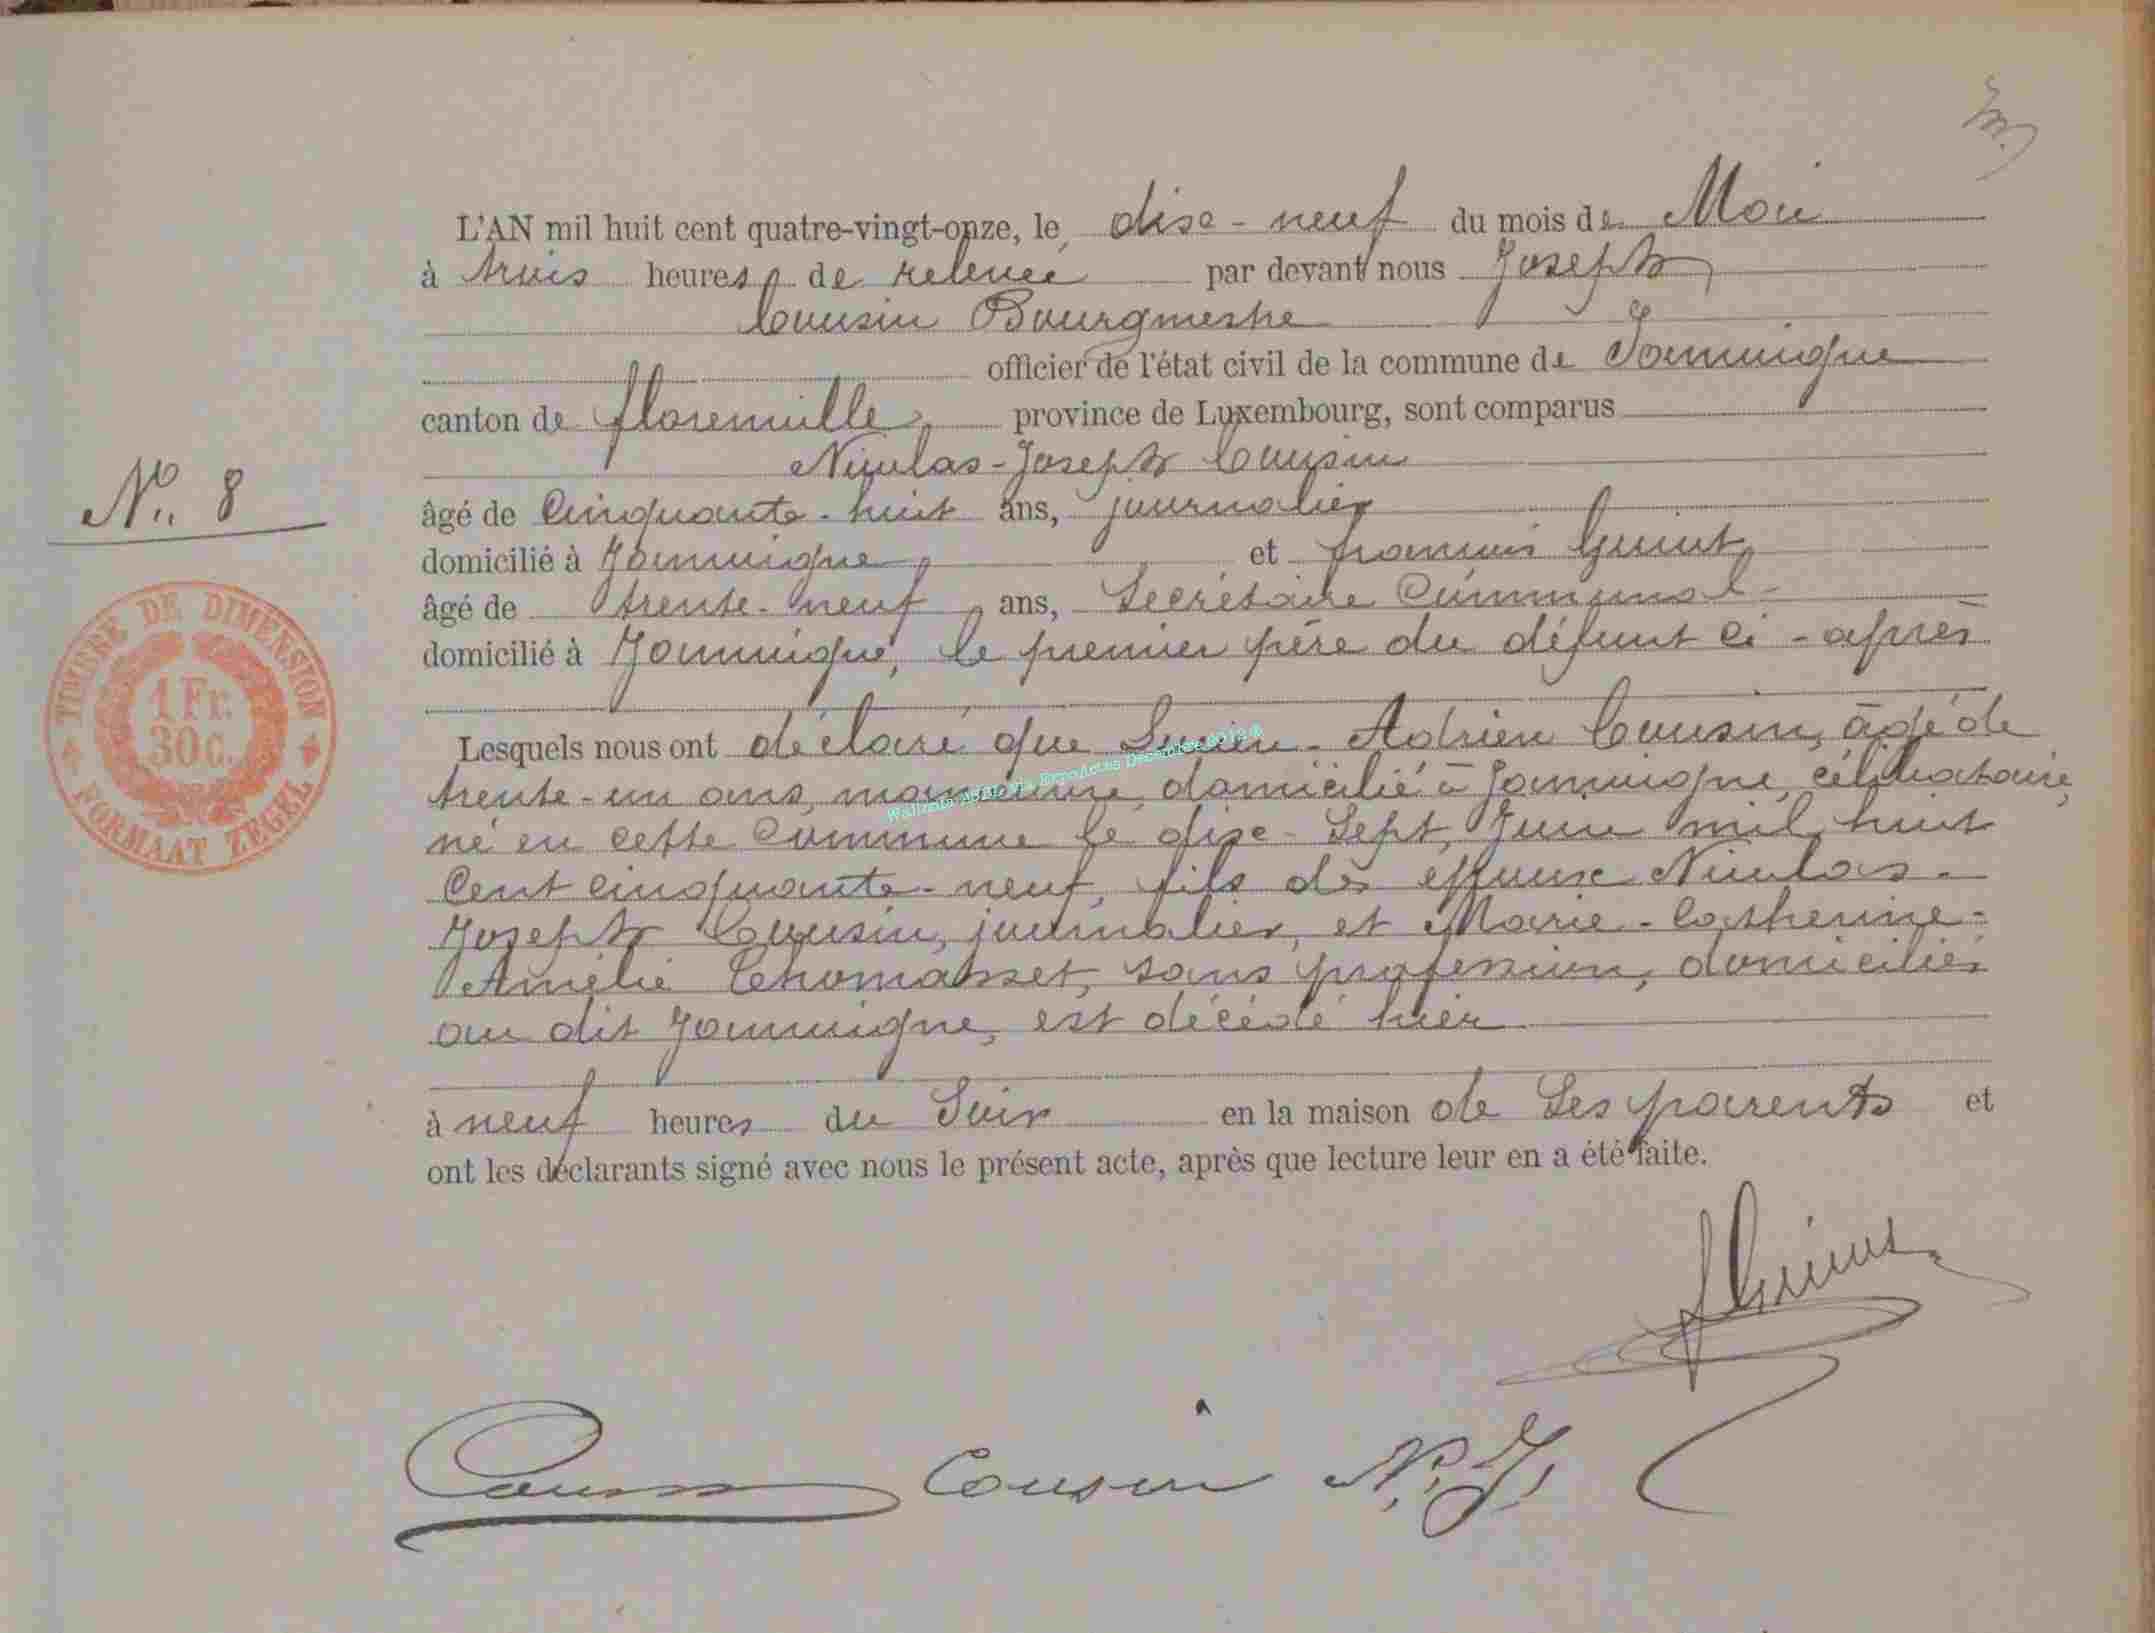 L'AN mil huit cent quatre-vingt-onze, le dix-neuf du mois de Mai
à trois heures de relevée par devant nous Joseph
Cousin Bourgmestre
officier de l'état civil de la commune de Jamoigne
canton de florenville, province de Luxembourg, sont comparus
Nicolas-Joseph Cousin
N° 8
âgé de Cinquante-huit ans, journalier
domicilié à Jamoigne, et françois
âgé de trente-neuf, ans, Secrétaire Communal
domicilié à Jamoigne, le premier père du défunt ci-après
Lesquels nous ont déclaré que Lucien-Adrien Cousin, âgé de
trente-un ans, domicilié à Jamoigne, célibataire,
né en cette Commune le dix-Sept Juin mil huit
Cent cinquante-neuf, fils des époux Nicolas-
Joseph Cousin, journalier, et Marie-Catherine-
Amélie Thomasset, sans profession, domiciliés
au dit Jamoigne, est décédé hier
à neuf heures du Soir en la maison de Ses parents et
ont les déclarants signé avec nous le présent acte, après que lecture leur en a été faite.
Cousin Cousin N. J.
TIMBRE DE DIMENSION
1 Fr.
30 c.
FORMAAT ZEGEL